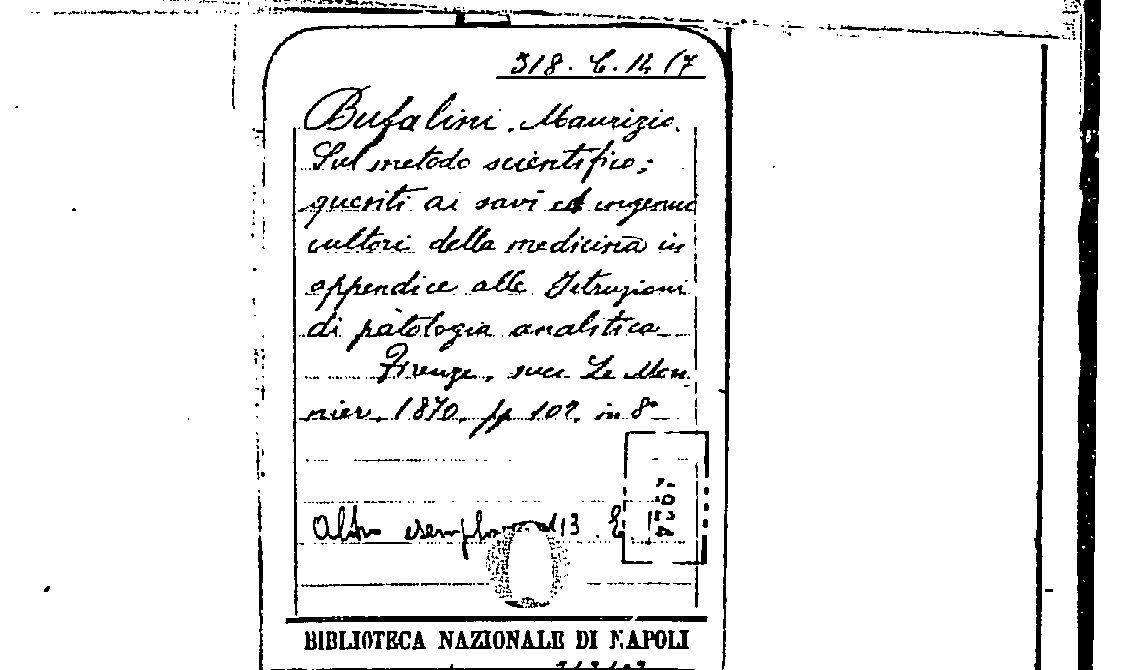 318. C. 14 (7
Bufalini, Maurizio.
Sul metodo scientifico;
quesiti ai savi ed ingenui
cultori della medicina in
appendice alle Istruzioni
di patologia analitica
Firenze, succ. Le Mon
nier, 1870, pp 102, in 8°
Altro esemplare 113. E
BIBLIOTECA NAZIONALE DI NAPOLI